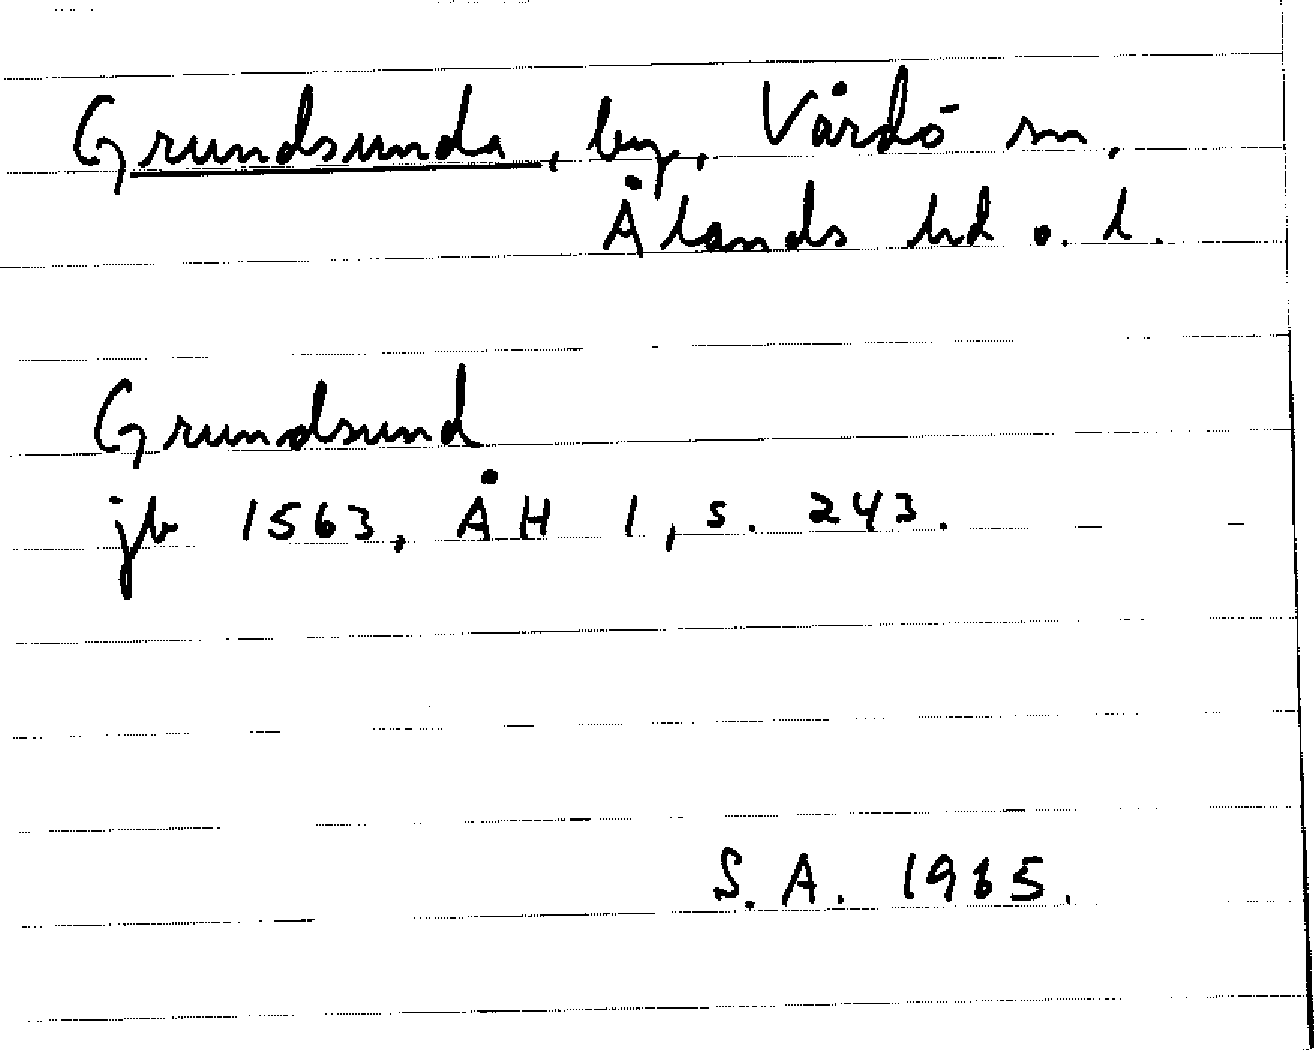 Grundsunda, by, Vårdö sn,
Ålands hd o. l.
Grundsund
jb 1563, ÅH 1, s. 243.
S.A. 1965.